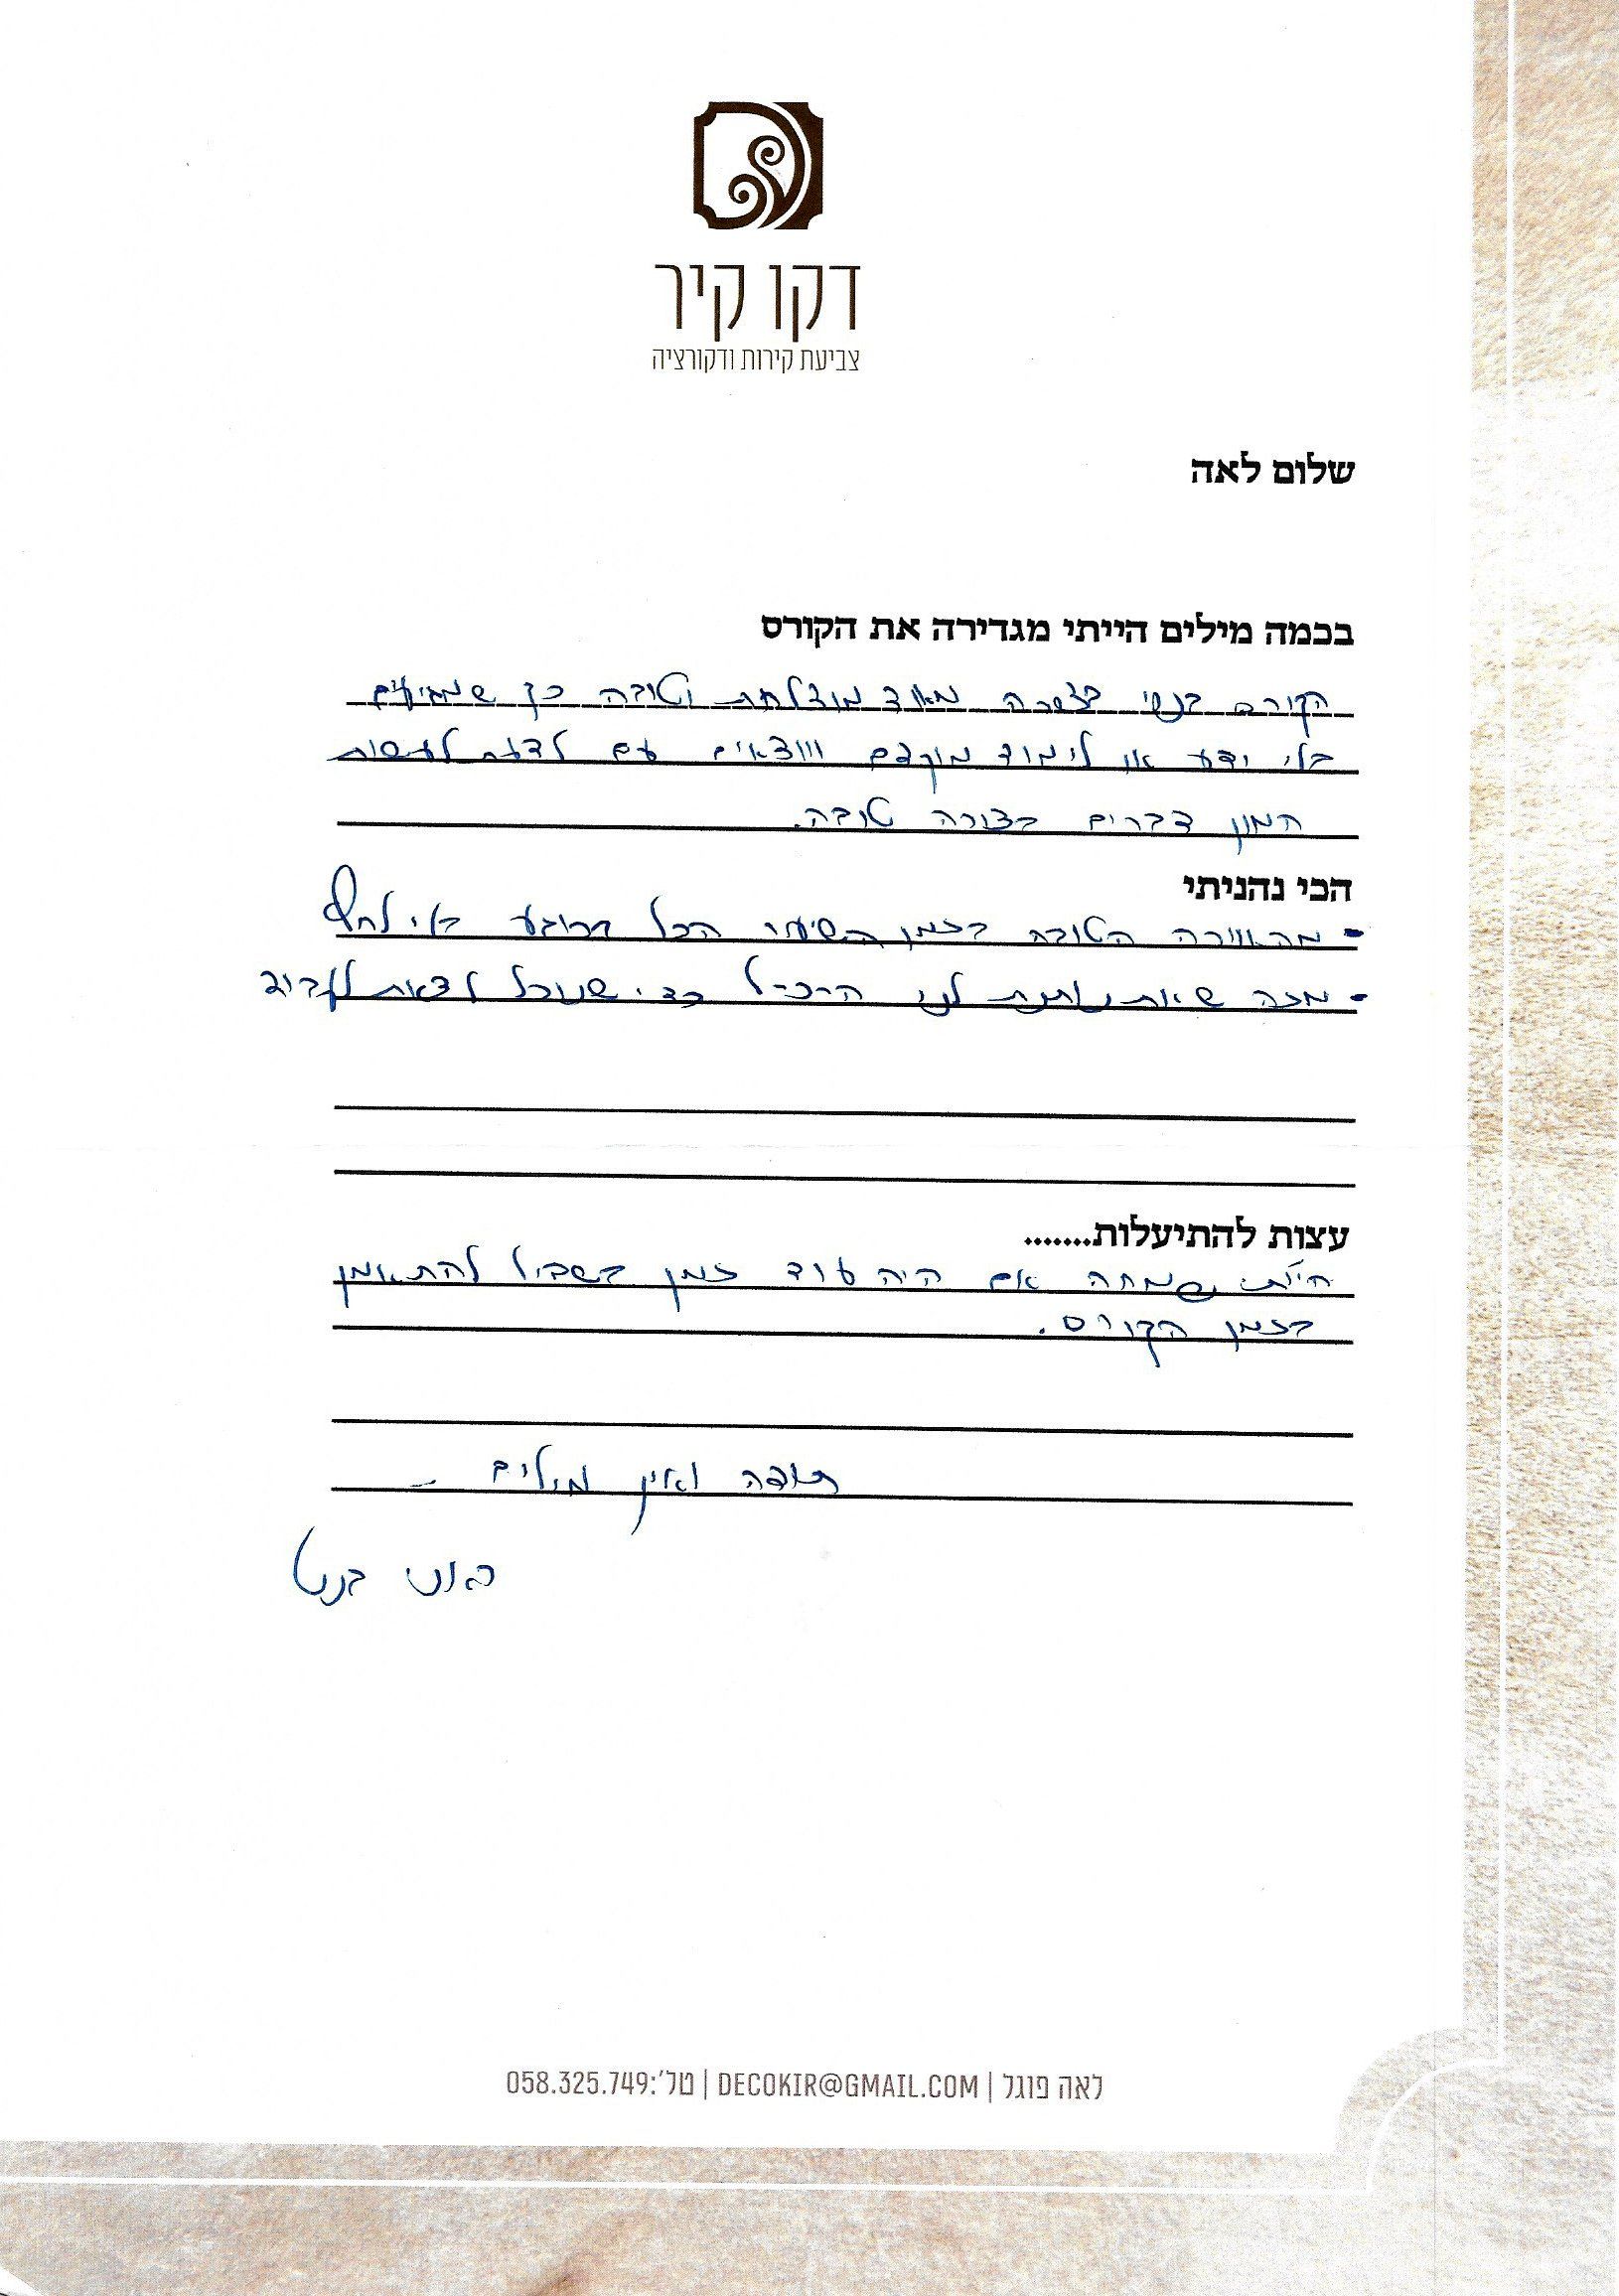 דקו קיר
צביעת קירות ודקורציה
שלום לאה
בכמה מילים הייתי מגדירה את הקורס
הקורס בנוי בצורה מאוד מוצלחת וטובה כך שמגיעים
בלי ידע או לימוד מוקדם ויוצאים עם לדעת לעשות
המון דברים בצורה טובה.
הכי נהניתי
- מהאוירה הטובה בזמן השיעור הכל ברוגע בלי לחץ
- מזה שאת נותנת לנו הכל כדי שנוכל לצאת לעבוד
עצות להתיעלות.......
הייתי שמחה אם היה עוד זמן בשביל להתאמן
בזמן הקורס.
תודה ואין מילים -
לאה פוגל | DECOKIR@GMAIL.COM | טל':058.325.749